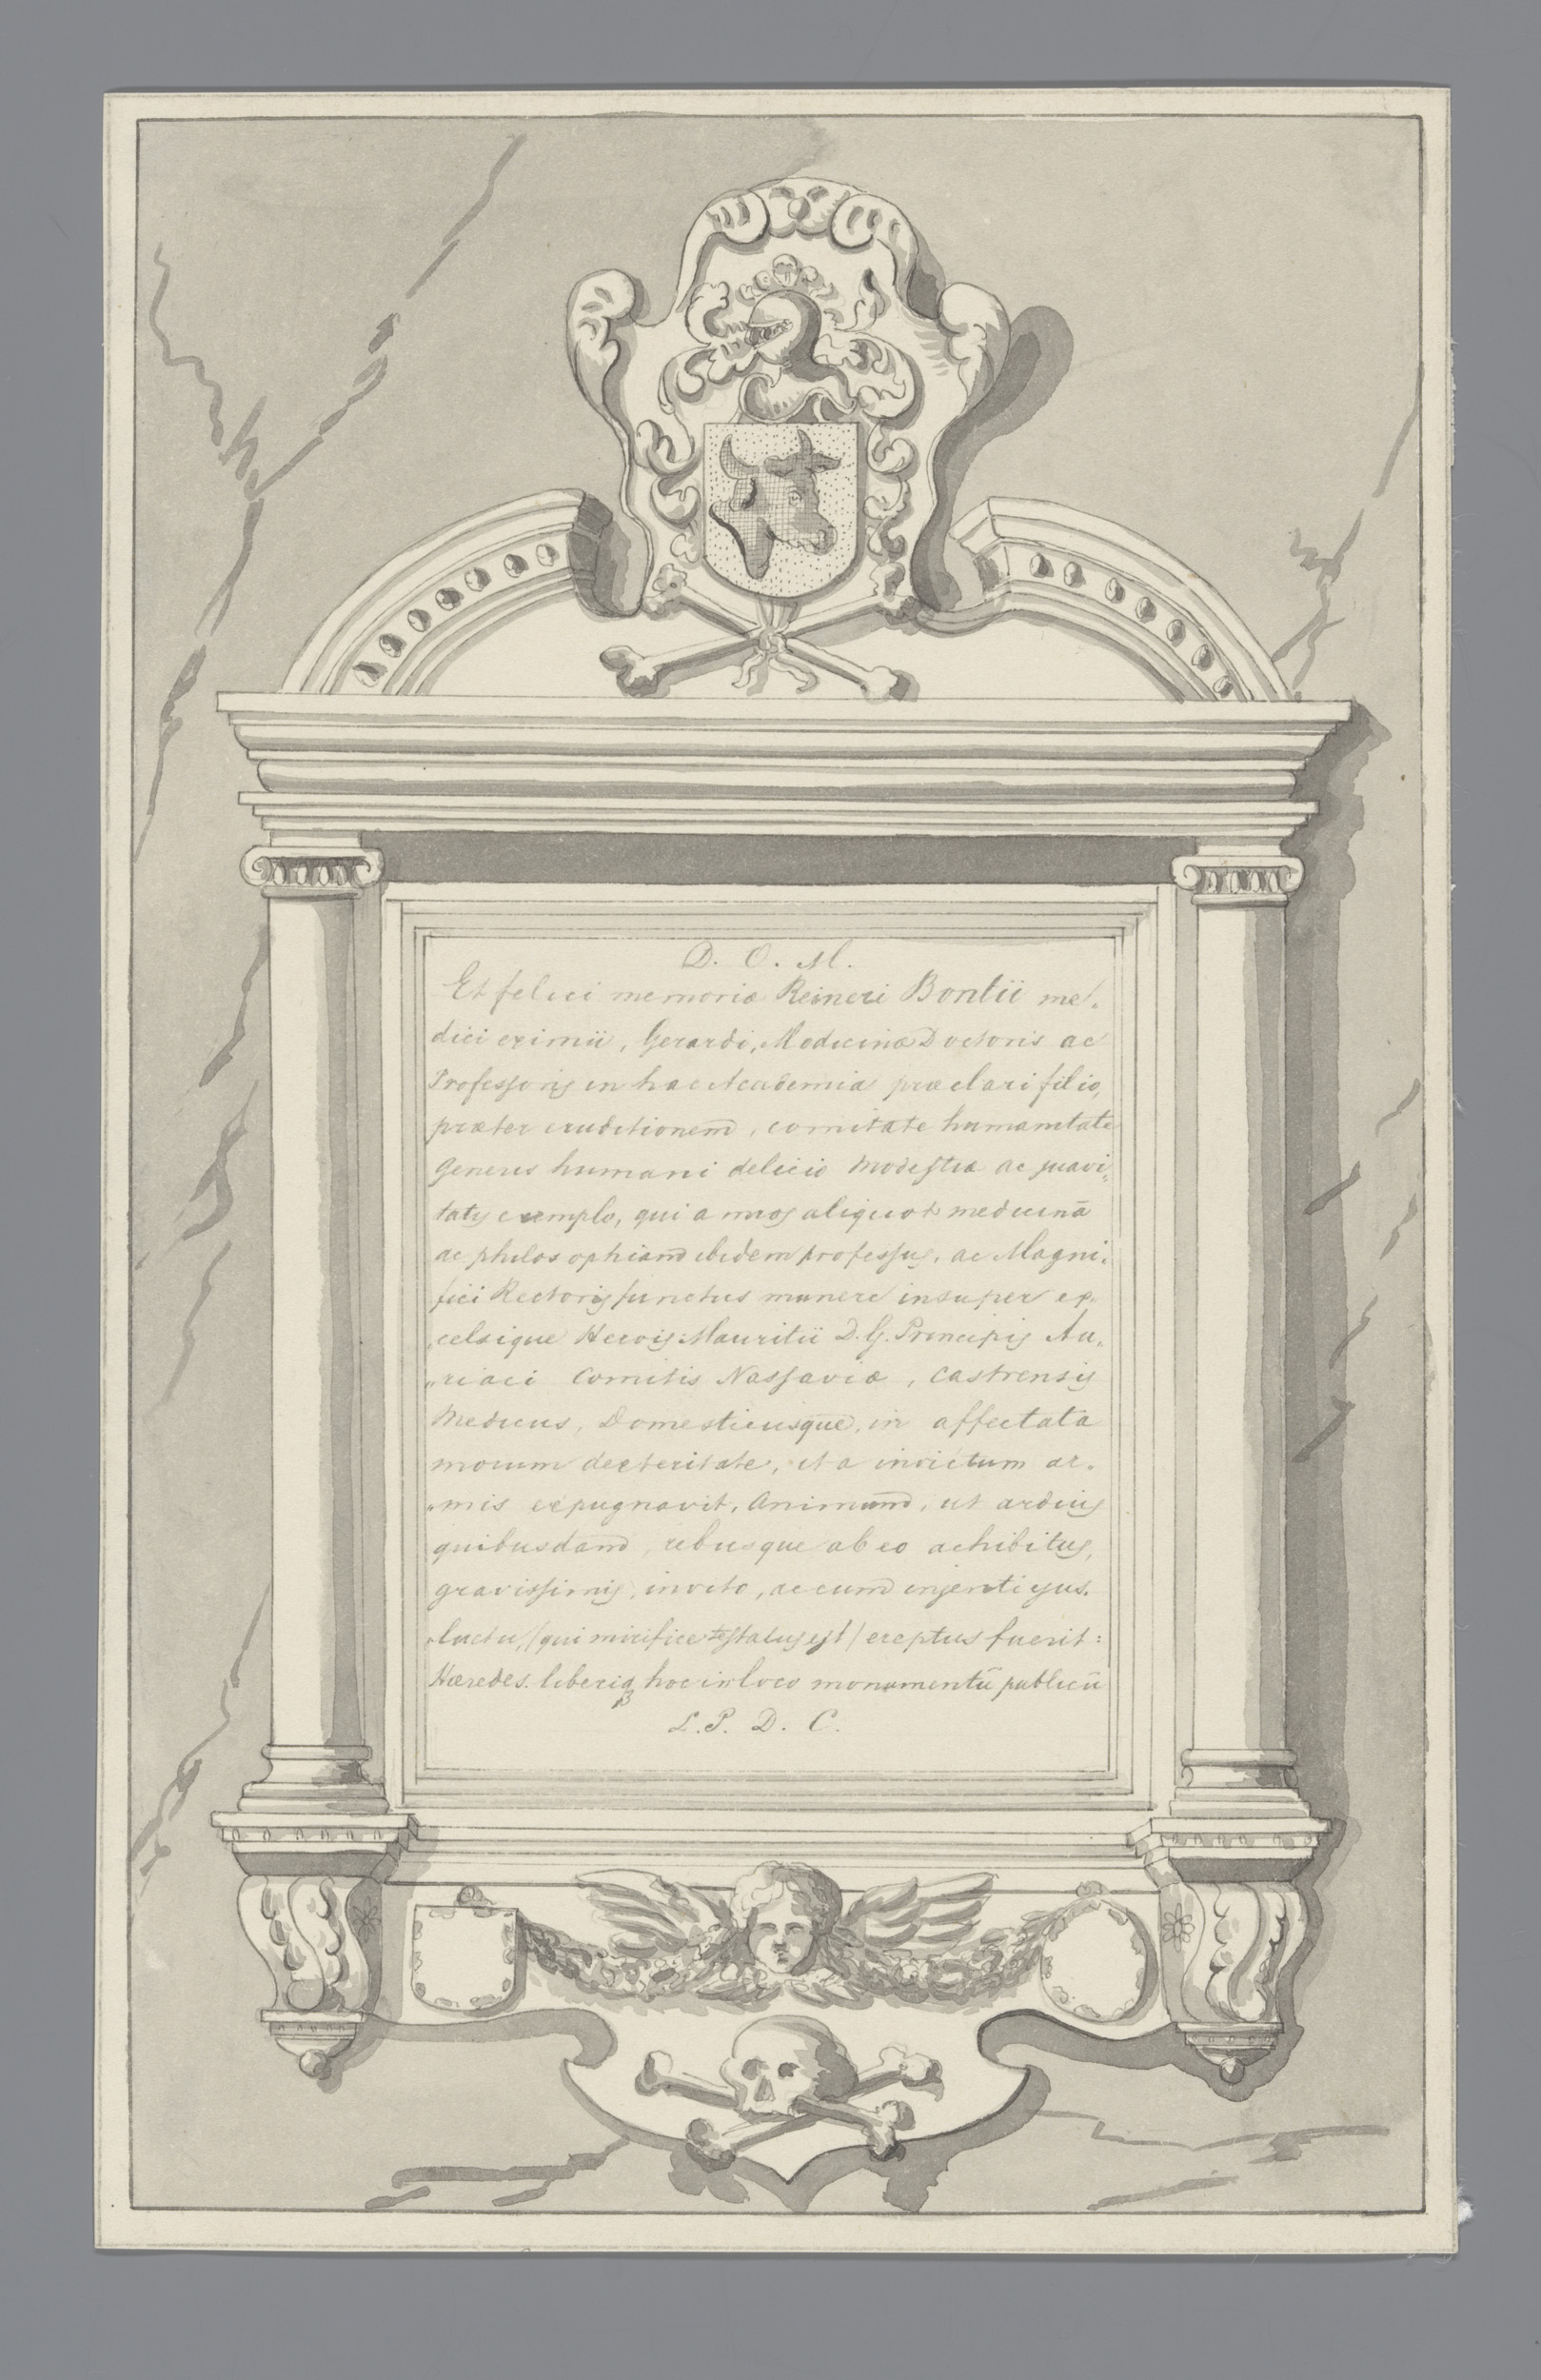 D. O. M.
Et felici memoriæ Reineri Bontii me,
dici eximii, Gerardi, Medicinæ Doctoris ac
Professoris in hac Academia præclari filio,
præter eruditionem, comitate humanitate
Generis humani delicio Modestiæ ac suavi,
tatis exemplo, qui annos aliquot medicinā
ac philosophiam ibidem professus, ac Magni,
fici Rectoris functus munere insuper ex,
celsique Herois Mauritii D. G. Principis Au,
„riaci Comitis Nassaviæ, Castrensis
Medicus, Domesticusque, in affectata
morum dexteritate, ita invictum ar,
„mis expugnavit, Animum, ut arduis
quibusdam, rebusque ab eo adhibitus,
gravissimis, invito, ac cum ingenti ejus.
luctu, (qui mirifice testatus est) ereptus fuerit:
Hæredes. liberiq hoc in loco monumentū publicū
L. P. D. C.